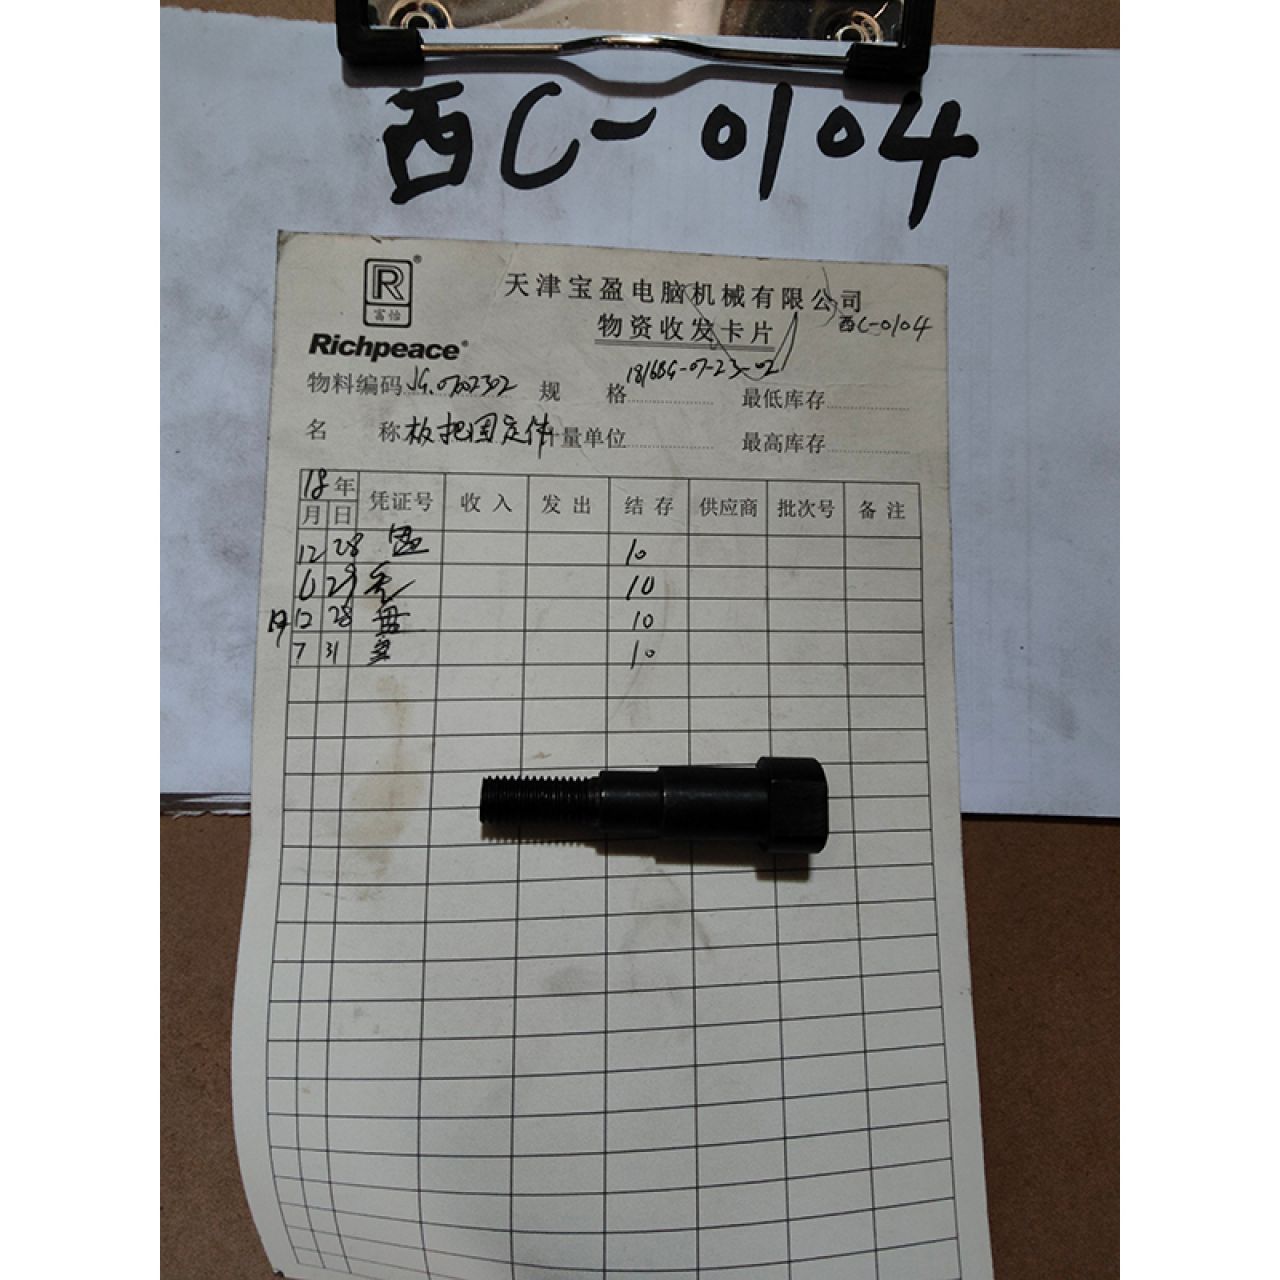 西C-0104
R®
富怡
Richpeace®
天津宝盈电脑机械有限公司
物资收发卡片
西C-0104
物料编码JG.0702302 规 格1816BG-07-23-02 最低库存
名 称 板把固定件 计量单位 最高库存
18年 凭证号 收入 发出 结存 供应商 批次号 备注
月 日
12 28 盘 10
6 29 10
19 12 28 盘 10
7 31 10